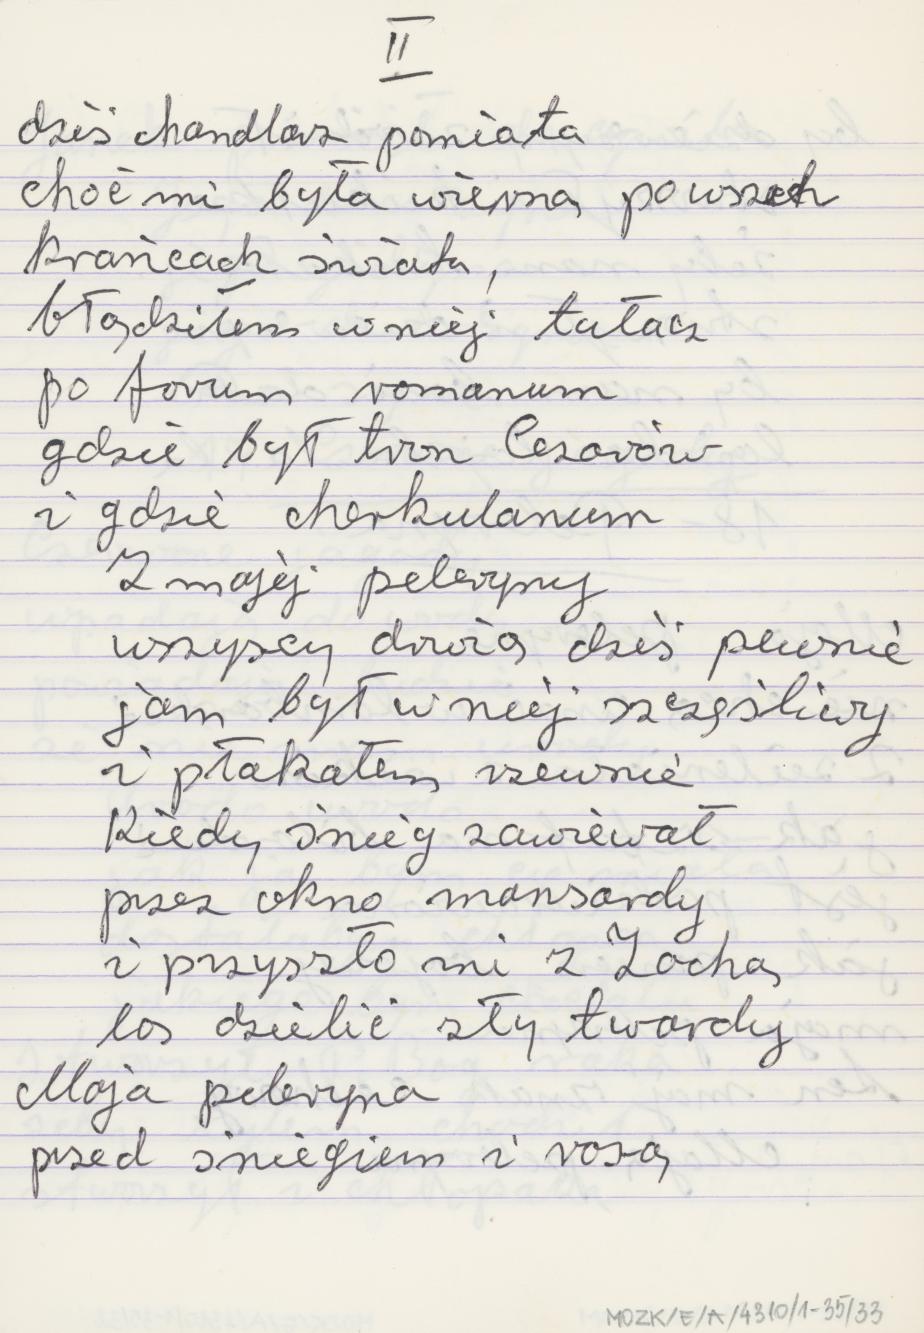 II
dziś chandlarz pomiata
choć mi była wierną po wszech
krańcach świata,
błądziłem w niej tułacz
po forum romanum
gdzie był tron Cezarów
i gdzie cherkulanum
Z mojej peleryny
wszyscy drwią dziś pewnie
jam był w niej szczęśliwy
i płakałem rzewnie
Kiedy śnieg zawiewał
przez okno mansardy
i przyszło mi z Zochą
los dzielić zły twardy
Moja peleryna
przed śniegiem i rosą
MOZK/E/A/4310/1-35/33